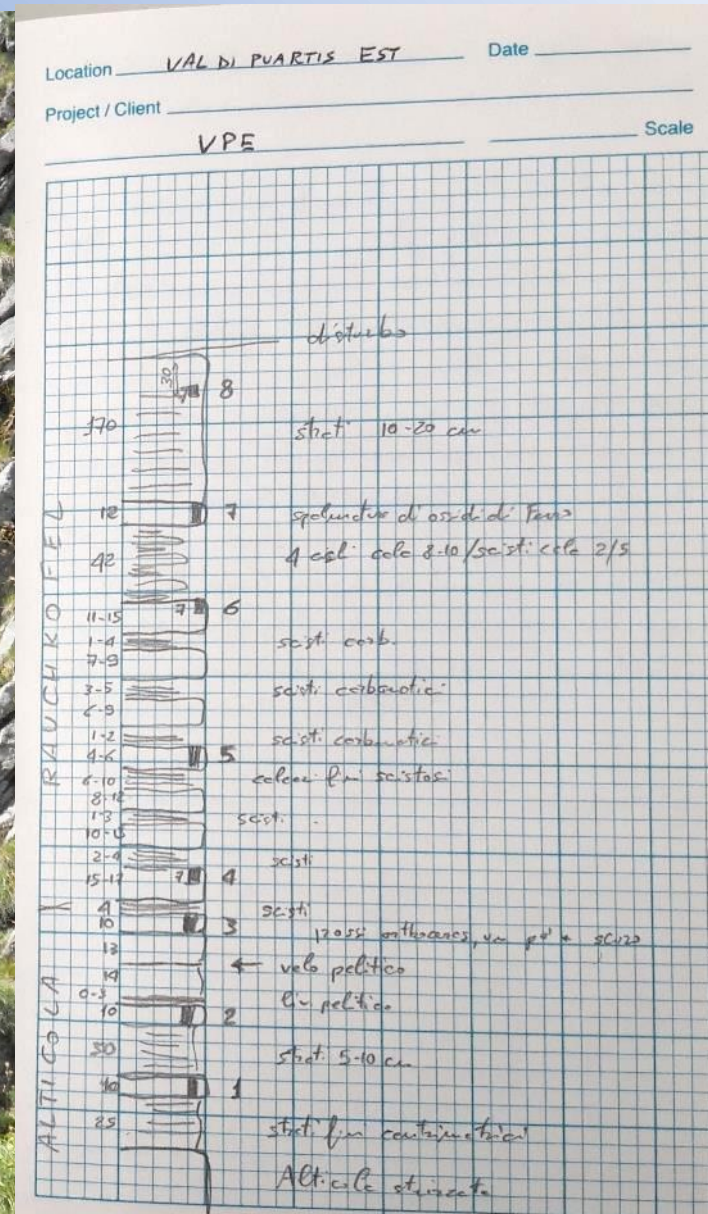 Location VAL DI PUARTIS EST Date
Project / Client
VPE Scale
disturbo
30
7 8
170 strati 10-20 cm
12 7 d'ossidi di
42 4 8-10/scisti 2/5
11-15 7 6
1-4 scisti carb.
7-9
3-5 scisti carbonatici
6-9
1-2 scisti carbonatici
4-6 5
6-10 calcari fini scistosi
8-12
1-3 scisti
10-15
2-4 scisti
15-17 7 4
4 scisti
10 3 grossi
13
velo pelitico
14
0-3 liv pelitico
10 2
50 strati 5-10 cm
10 1
25 strati fini centimetrici
Alticola
RAUCHKOFEL
ALTICOLA